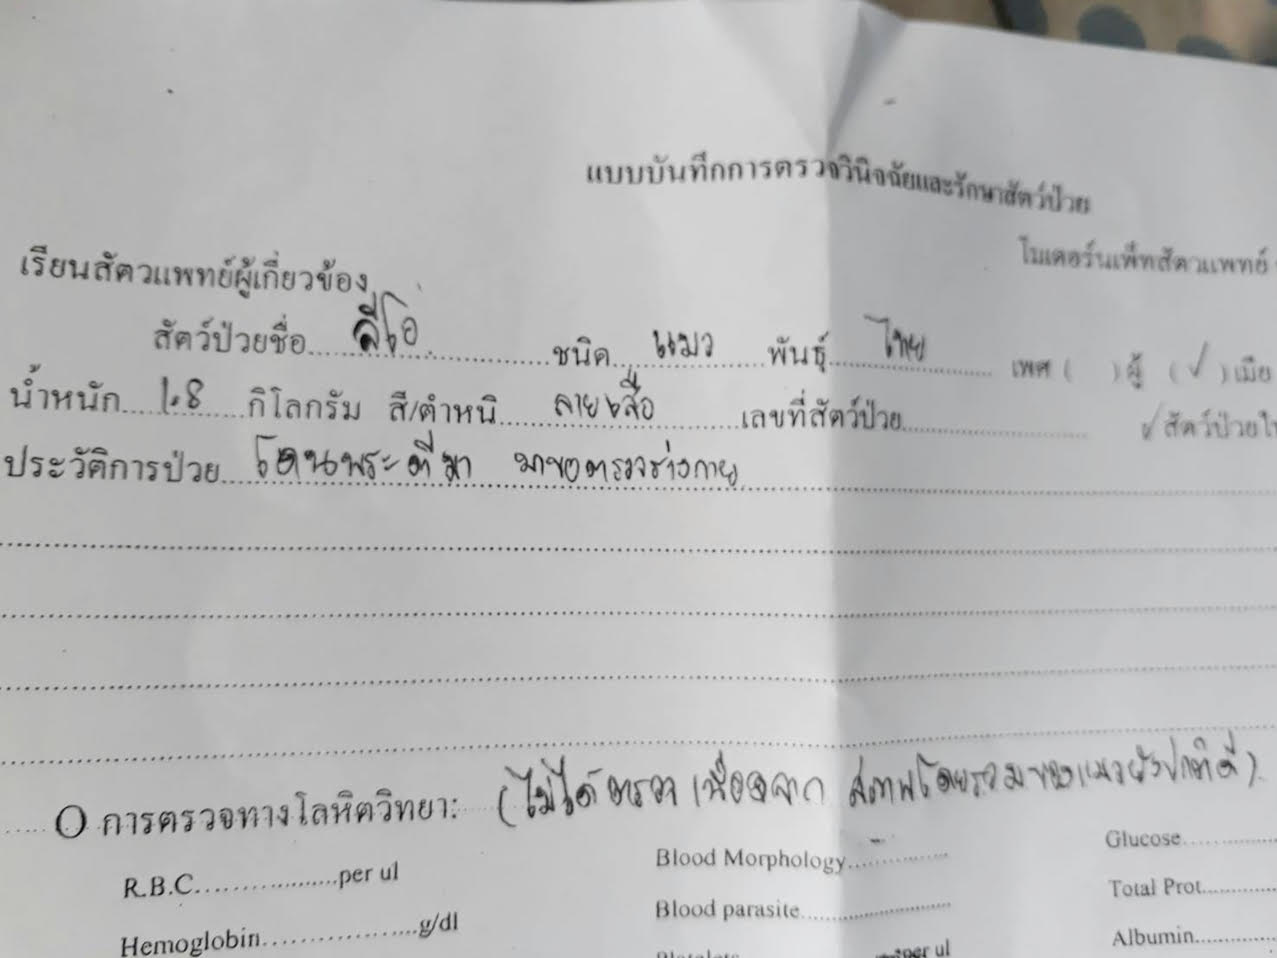 แบบบันทึกการตรวจวินิจฉัยและรักษาสัตว์ป่วย
โมเดอร์นเพ็ทสัตวแพทย์
เรียนสัตวแพทย์ผู้เกี่ยวข้อง
สัตว์ป่วยชื่อ ลีโอ ชนิด แมว พันธุ์ ไทย เพศ ( ) ผู้ (✓) เมีย
น้ำหนัก 1.8 กิโลกรัม สี/ตำหนิ ลายเสือ เลขที่สัตว์ป่วย ✓สัตว์ป่วยใ
ประวัติการป่วย โดนพระตีมา มาขอตรวจร่างกาย
O การตรวจทางโลหิตวิทยา: (ไม่ได้ตรวจ เนื่องจาก สภาพโดยรวมของแมวยังปกติดี)
R.B.C. per ul Blood Morphology Glucose
Hemoglobin g/dl Blood parasite Total Prot.
per ul Albumin